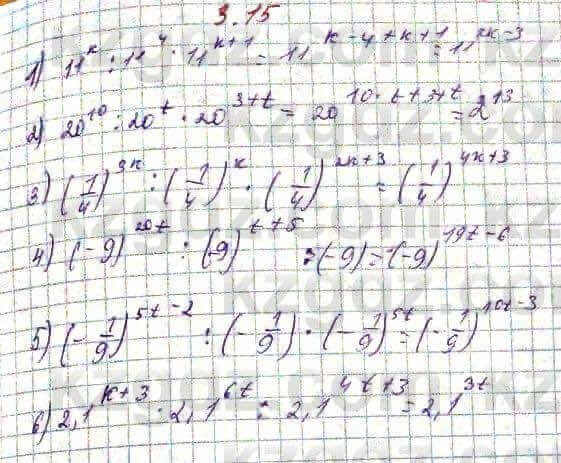 3.15
1) 11^k : 11^4 · 11^(k+1) = 11^(k-4+k+1) = 11^(2k-3)
2) 20^10 : 20^t · 20^(3+t) = 20^(10-t+3+t) = 2^13
3) (1/4)^(3k) : (1/4)^k · (1/4)^(2k+3) = (1/4)^(4k+3)
4) (-9)^(20t) : (-9)^(t+5) : (-9) = (-9)^(19t-6)
5) (-1/9)^(5t-2) : (-1/9) · (-1/9)^(5t) = (-1/9)^(10t-3)
6) 2,1^(k+3) : 2,1^(6t) : 2,1^(4t+3) = 2,1^(3t)